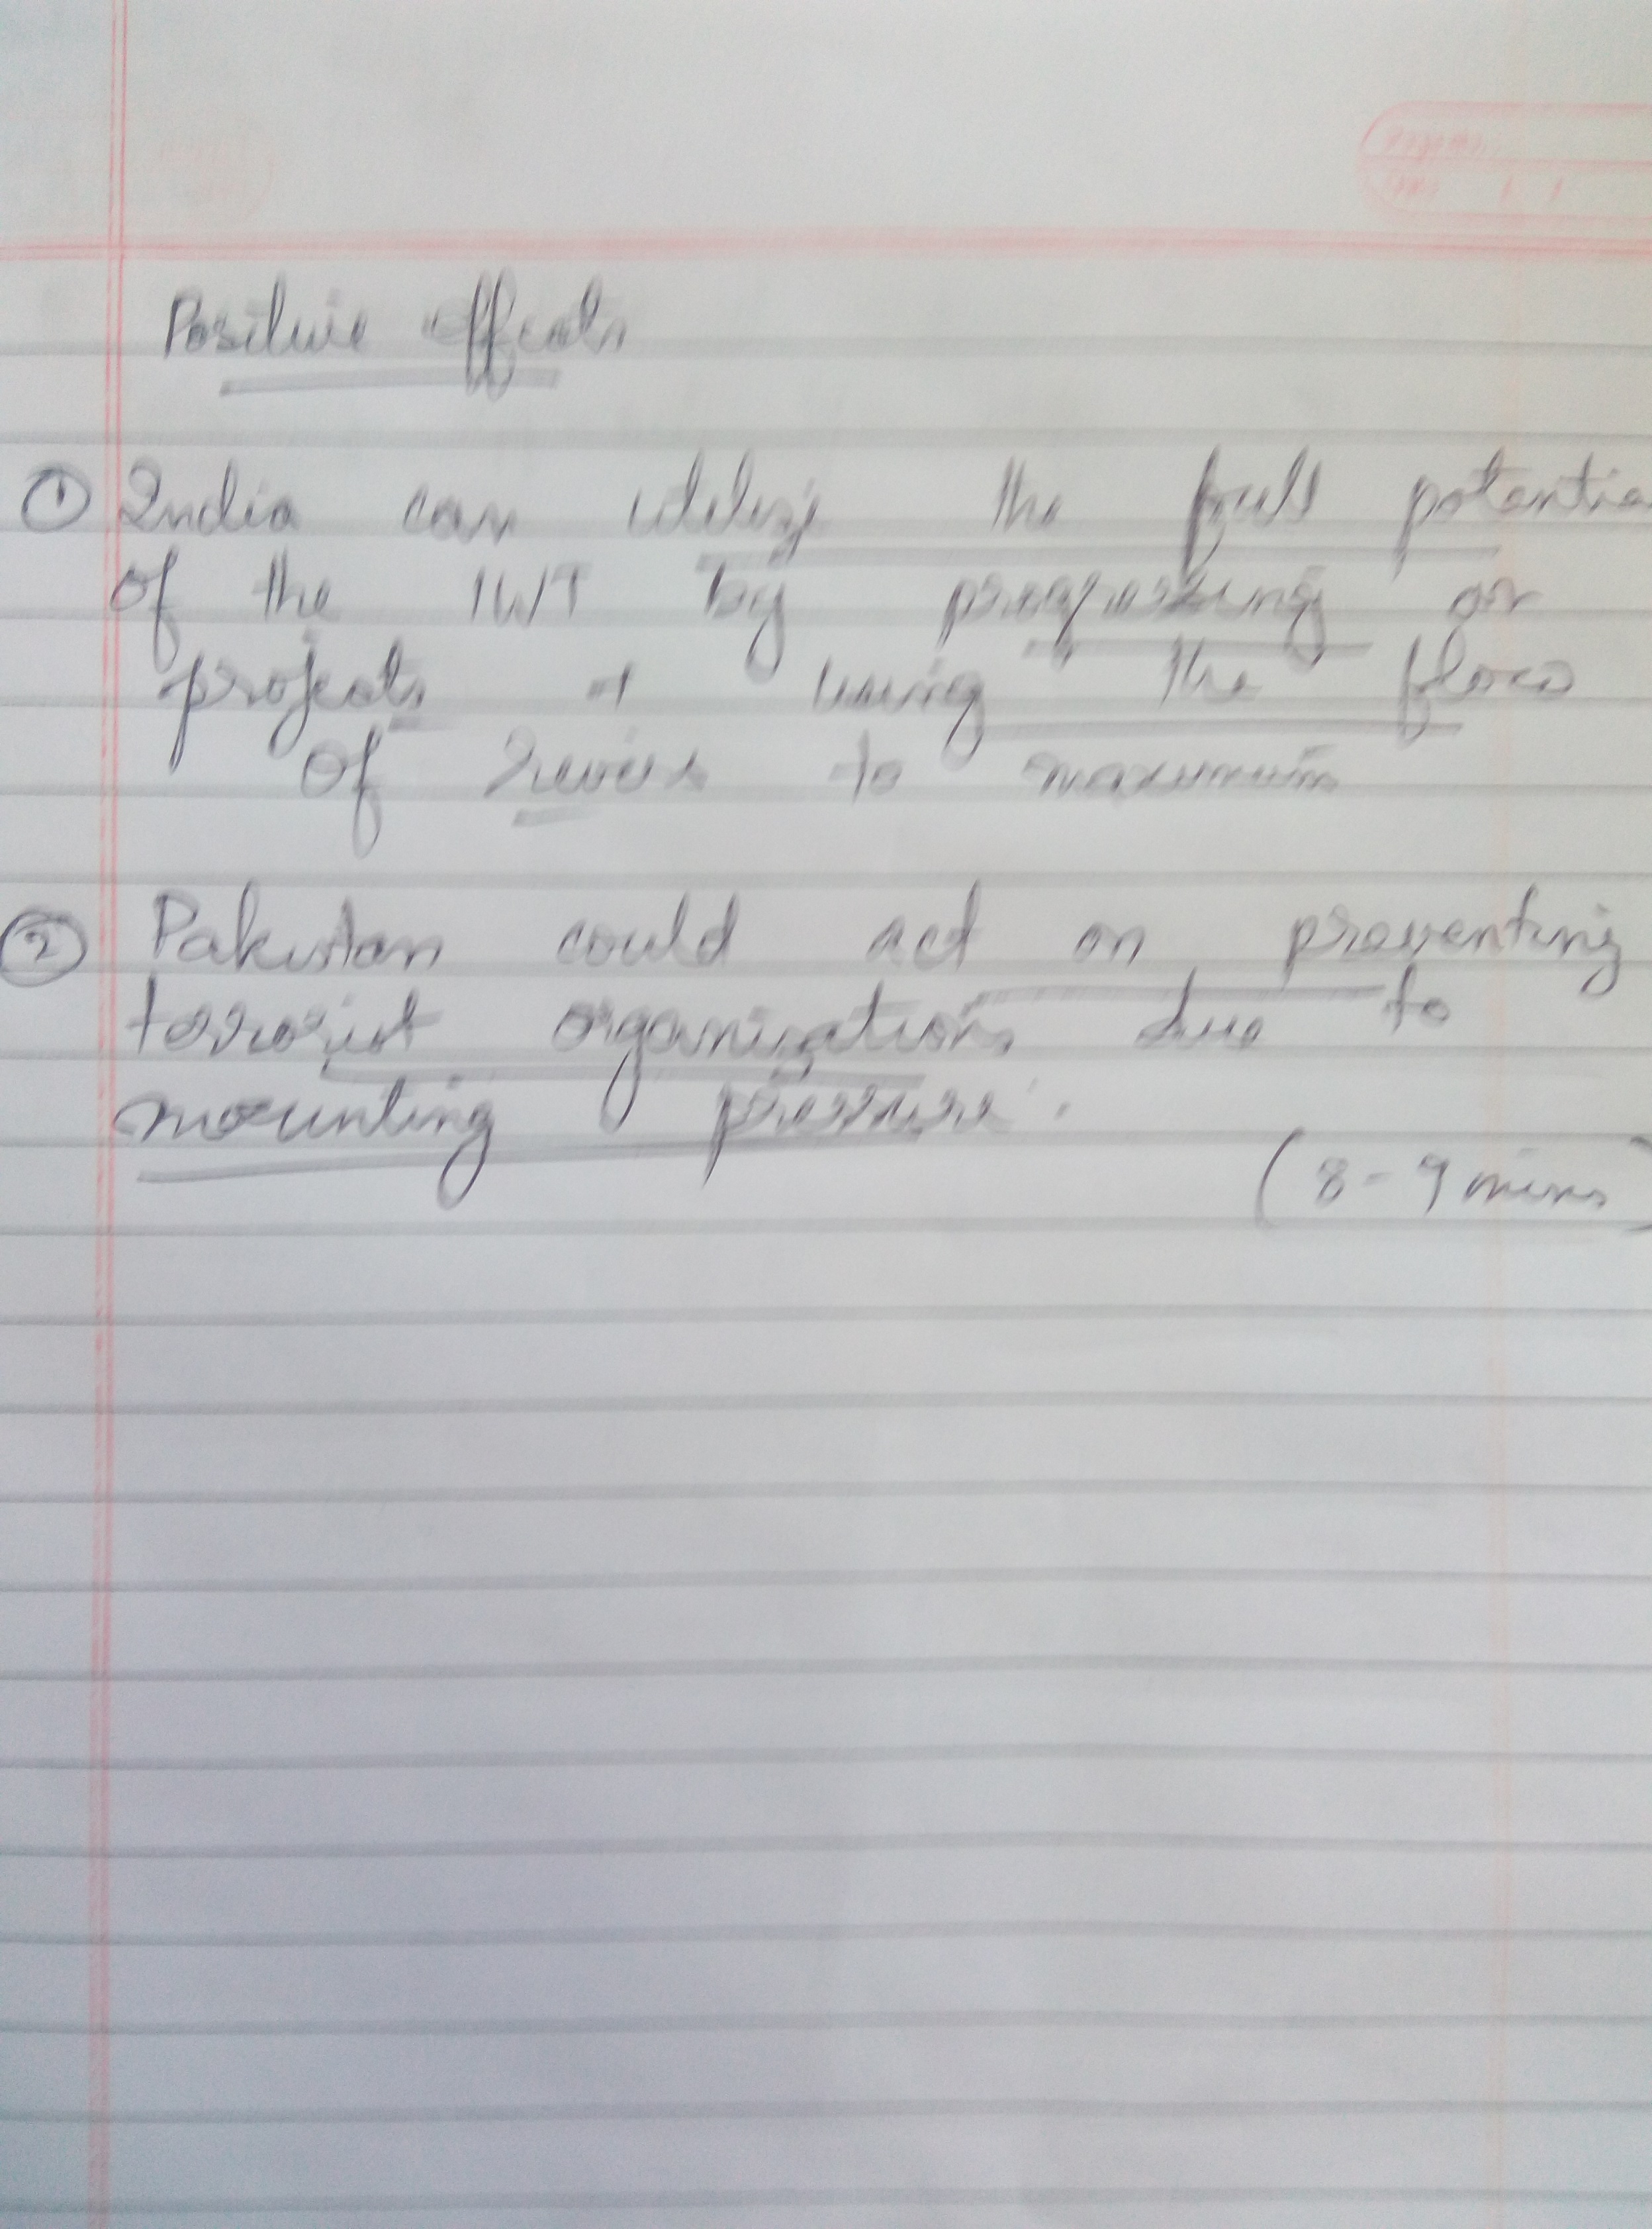 Positive effects
① India can utilize the full potential
of the IWT by progressing on
projects & using the flow
of rivers to maximum
② Pakistan could act on preventing
terrorist organizations due to
mounting pressure.
(8-9 mins)